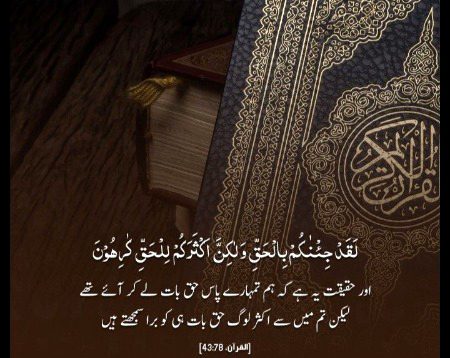 القرآن الكريم
لَقَدْ جِئْنٰكُمْ بِالْحَقِّ وَلٰكِنَّ اَكْثَرَكُمْ لِلْحَقِّ كٰرِهُوْنَ
اور حقیقت یہ ہے کہ ہم تمہارے پاس حق بات لے کر آئے تھے
لیکن تم میں سے اکثر لوگ حق بات ہی کو برا سمجھتے ہیں
[القرآن، 43:78]